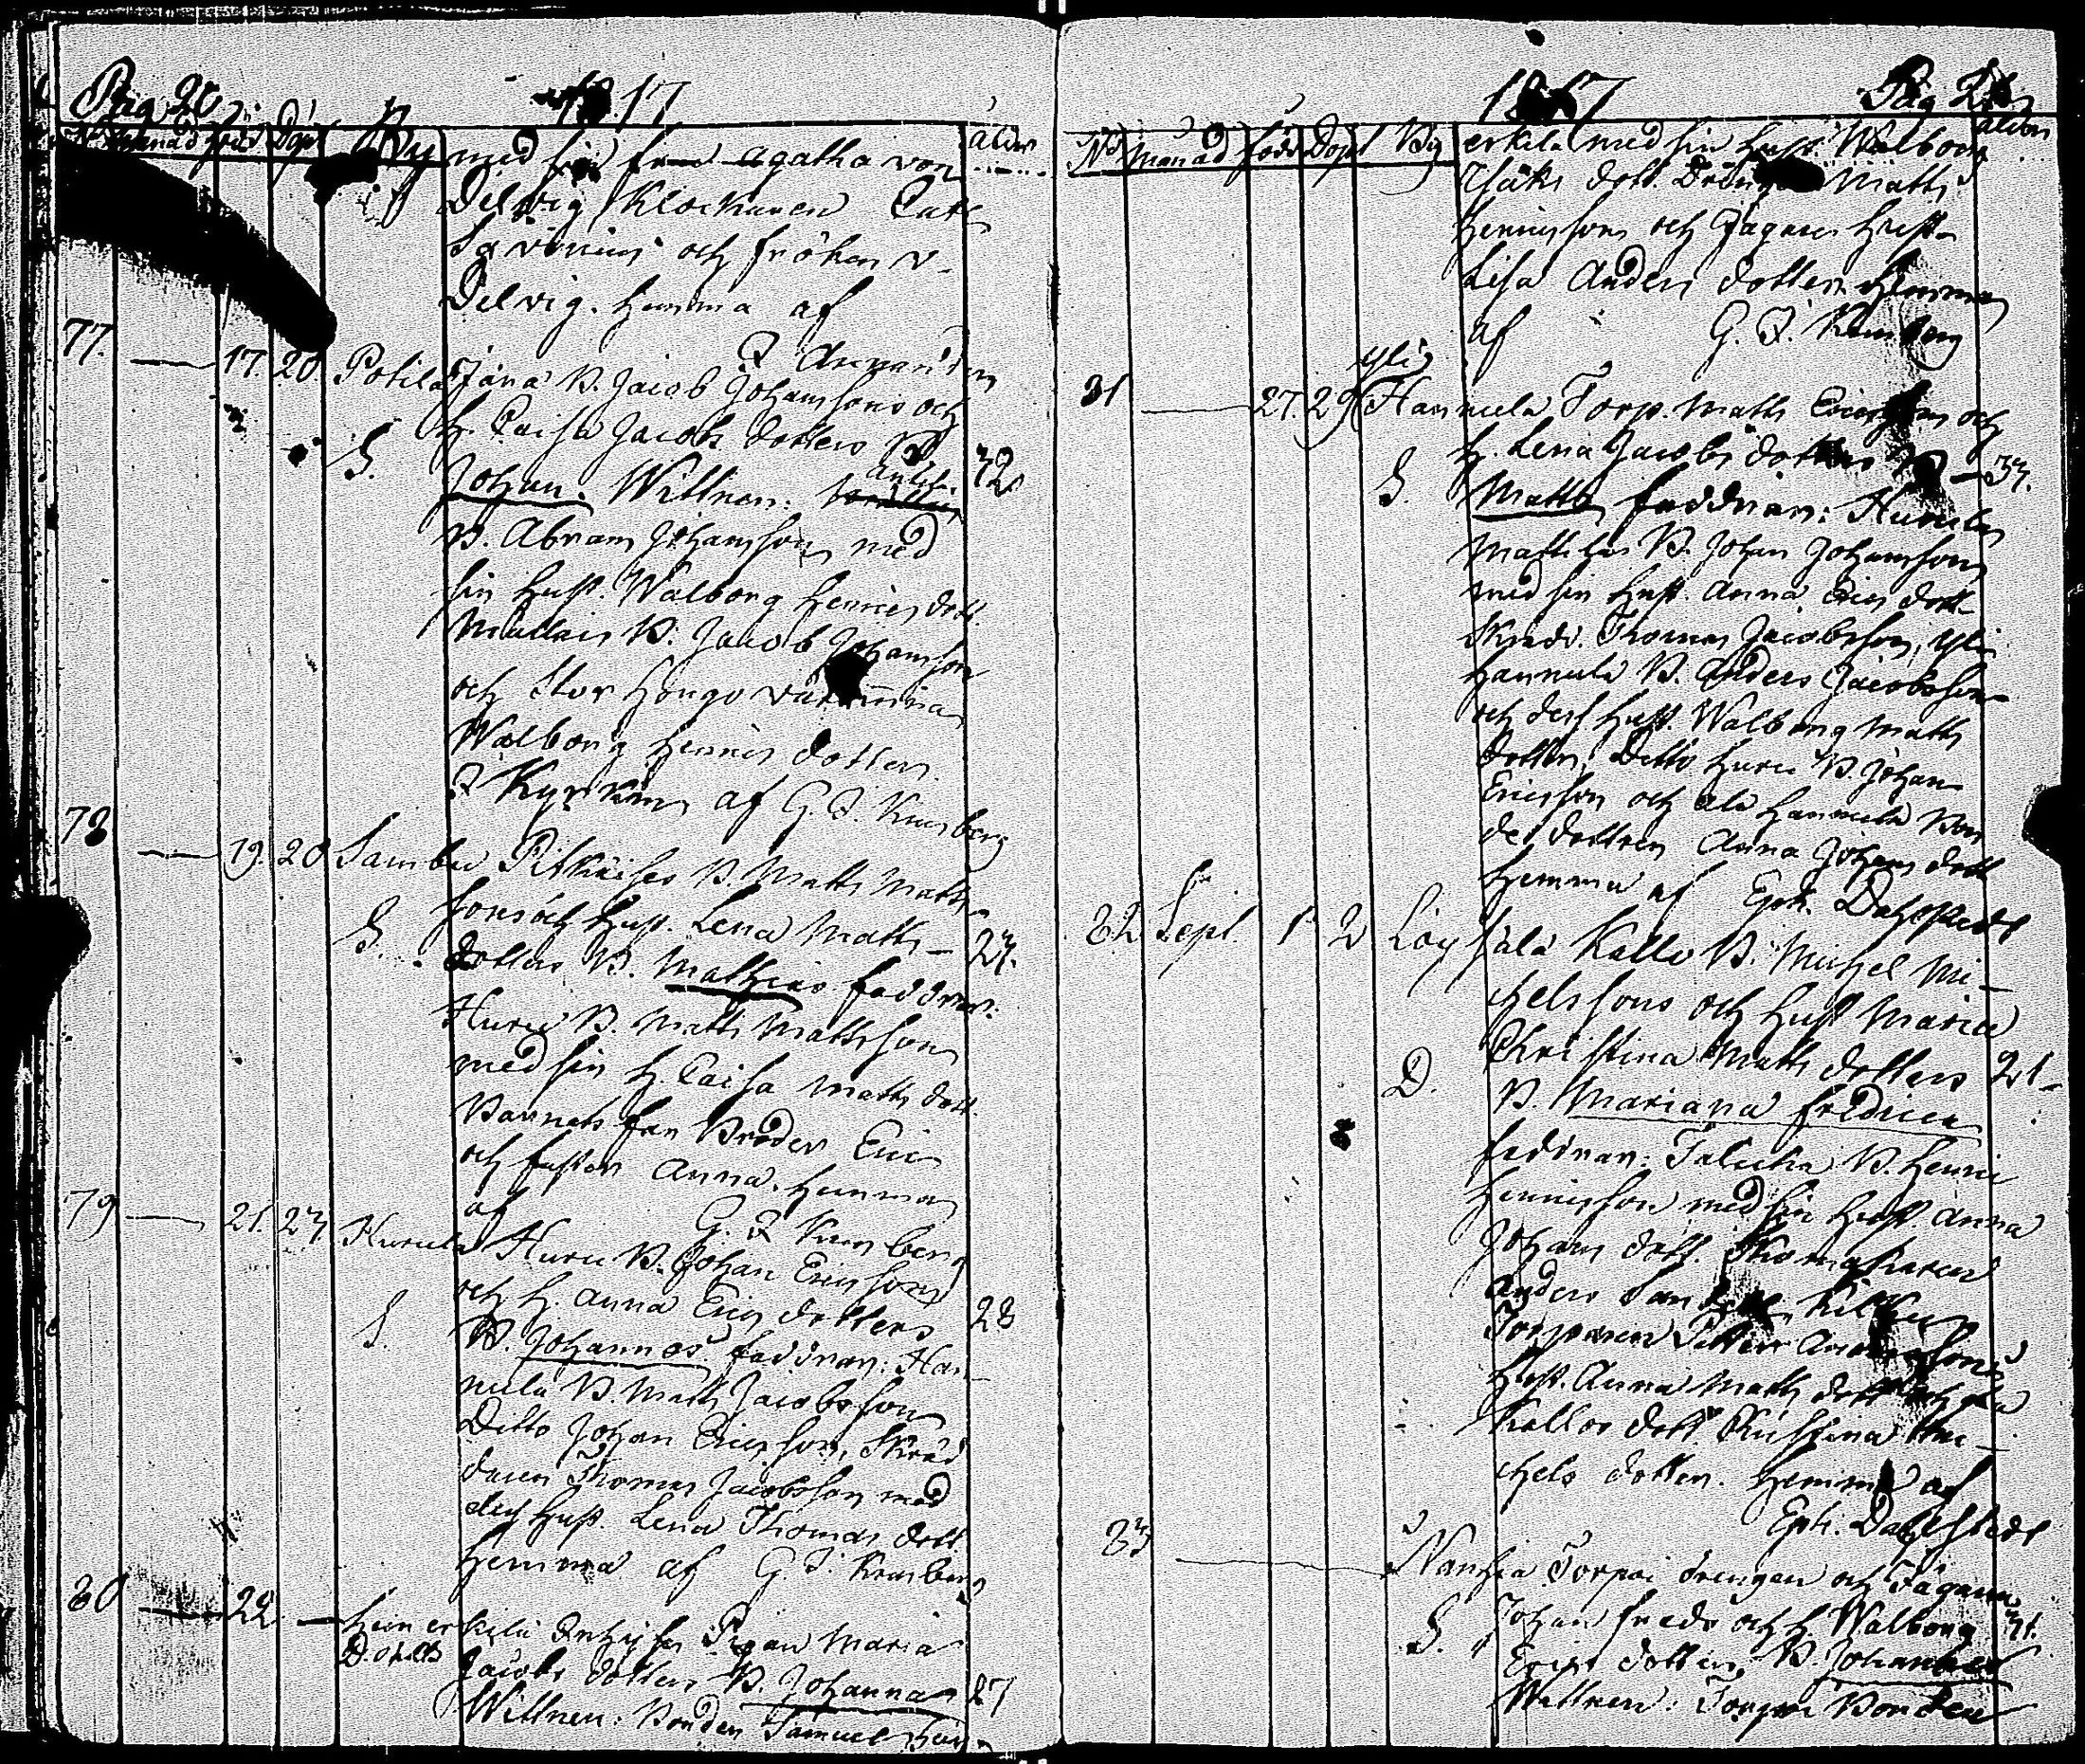 Pag 20. 1817
No Månad född Döpt By ålder
med sin fru Agatha von
Delwig Klockaren Carl
och fröken v.
Delvig. hemma af
77. — 17. 20. Potila Jäna B. Jacob Johanssons och
h. Caisa Jacobs dotters B. 32
S. Johan. Wittnen: Anttila
B. Abram Johansson med
sin hust. Walborg Henrics dott.
B. Jacob Johansson
och Stor Hongo
Walborg Henrics dotter.
I Kyrkan af G. I. Kumberg
78 — 19. 20 Sambu Pitkäises B. Matts Matts
sons och hust. Lena Matts — 27.
S. dotters B. Mathias faddrar.
Huru B. Matts Mattsson
med sin h. Caisa Matts dott.
Barnets far Broder Eric
och faster Anna. hemma
af G. I. Kumberg
79 — 21. 23 Hurula Huru B. Johan Ericssons
och h. Anna Erics dotters 28
S. B. Johannes. faddrar: Han-
nula B. Matts Jacobsson
Ditto Johan Ericsson, Skräd
daren Thomas Jacobsson med
dess hust. Lena Thomas dott.
hemma af G. I. Kumberg
80 — 22 — Hein erkilä Inhyses Pigan Maria
D. oächta Jacobs dotters B. Johanna 27
Wittnen: Bonden Samuel Hein
1817 Pag 21
No Månad född Döpt By ålder
erkilä med sin hust. Walborg
Isaks dott. Drängen Matts
Henricsson och Jägares hust.
Lisa Anders dotter. hemma
af G. I. Kumberg
Yli
81 — 27. 29 Hannula Torp. Matts Ericsson och
h. Lena Jacobs dotters B. — 33.
S. Matts faddrar: Hurula
Mattilas B. Johan Johansson
med sin hust. Anna Erics dott
Skrädd. Thomas Jacobsson, Yli
Hannula B. Anders Jacobsson
och dess hust. Walborg Matts
dotter, Ditto Huru B. Johan
Ericsson och Ala Hannula Bon
de dottren Anna Johans dott
hemma af Eph. Dahlstedt
82. Sept. 1 2 Loy sala Kallo B. Michel Mi-
chelssons och hust Maria
Christina Matts dotters 21 —
D. B. Mariana Fredrica
faddrar: B. Henric
Henricsson med sin hust Anna
Johans dott. Skomakaren
Anders
Torparen Petter Anderssons
hust. Anna Matts dott och
Kallos dott Christina Mi-
chels dotter. hemma af
Eph. Dahlstedt
83 — Nanhia Torpoi drengen och Jägaren
S. Johan Freds och h. Walborg 31.
Erics dotters B. Johannes
Wittnen: Torpoi Bonden